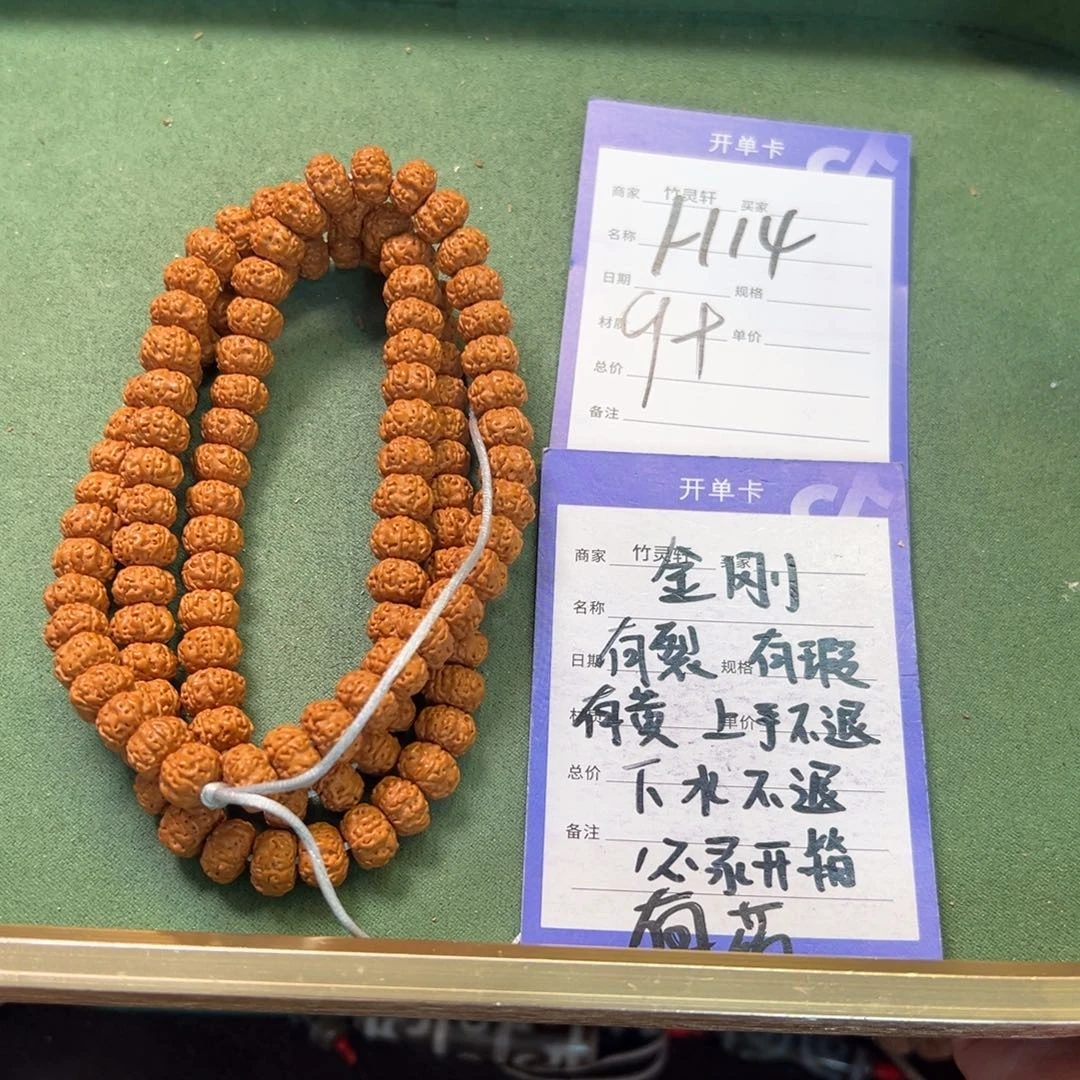 开单卡
商家 竹灵轩 买家
H114
名称
日期 规格
9+
材质 单价
总价
备注
开单卡
商家 竹灵轩
金刚
名称
有裂 有瑕
日期 规格
有黄 上手不退
单价
总价
下水不退
备注
必录开箱
有